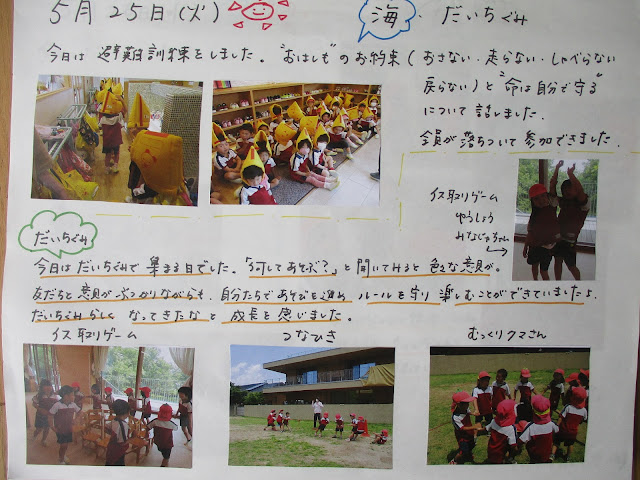 5月25日(火)
海. だいちぐみ
今日は 避難訓練をしました。"おはしも"のお約束(おさない・走らない・しゃべらない
戻らない)と"命は自分で守る"
について話しました.
全員が落ちついて参加できました.
イス取りゲーム
ゆうしょう
みなじゃちゃん
だいちぐみ
今日はだいちぐみで集まる日でした。「何してあそぶ?」と聞いてみると色々な意見が。
友だちと意見がぶつかりながらも、自分たちであそびを進め ルールを守り 楽しむことができていましたよ.
だいちぐみらしく なってきたなと 成長を感じました。
イス取りゲーム
つなひき
むっくりクマさん